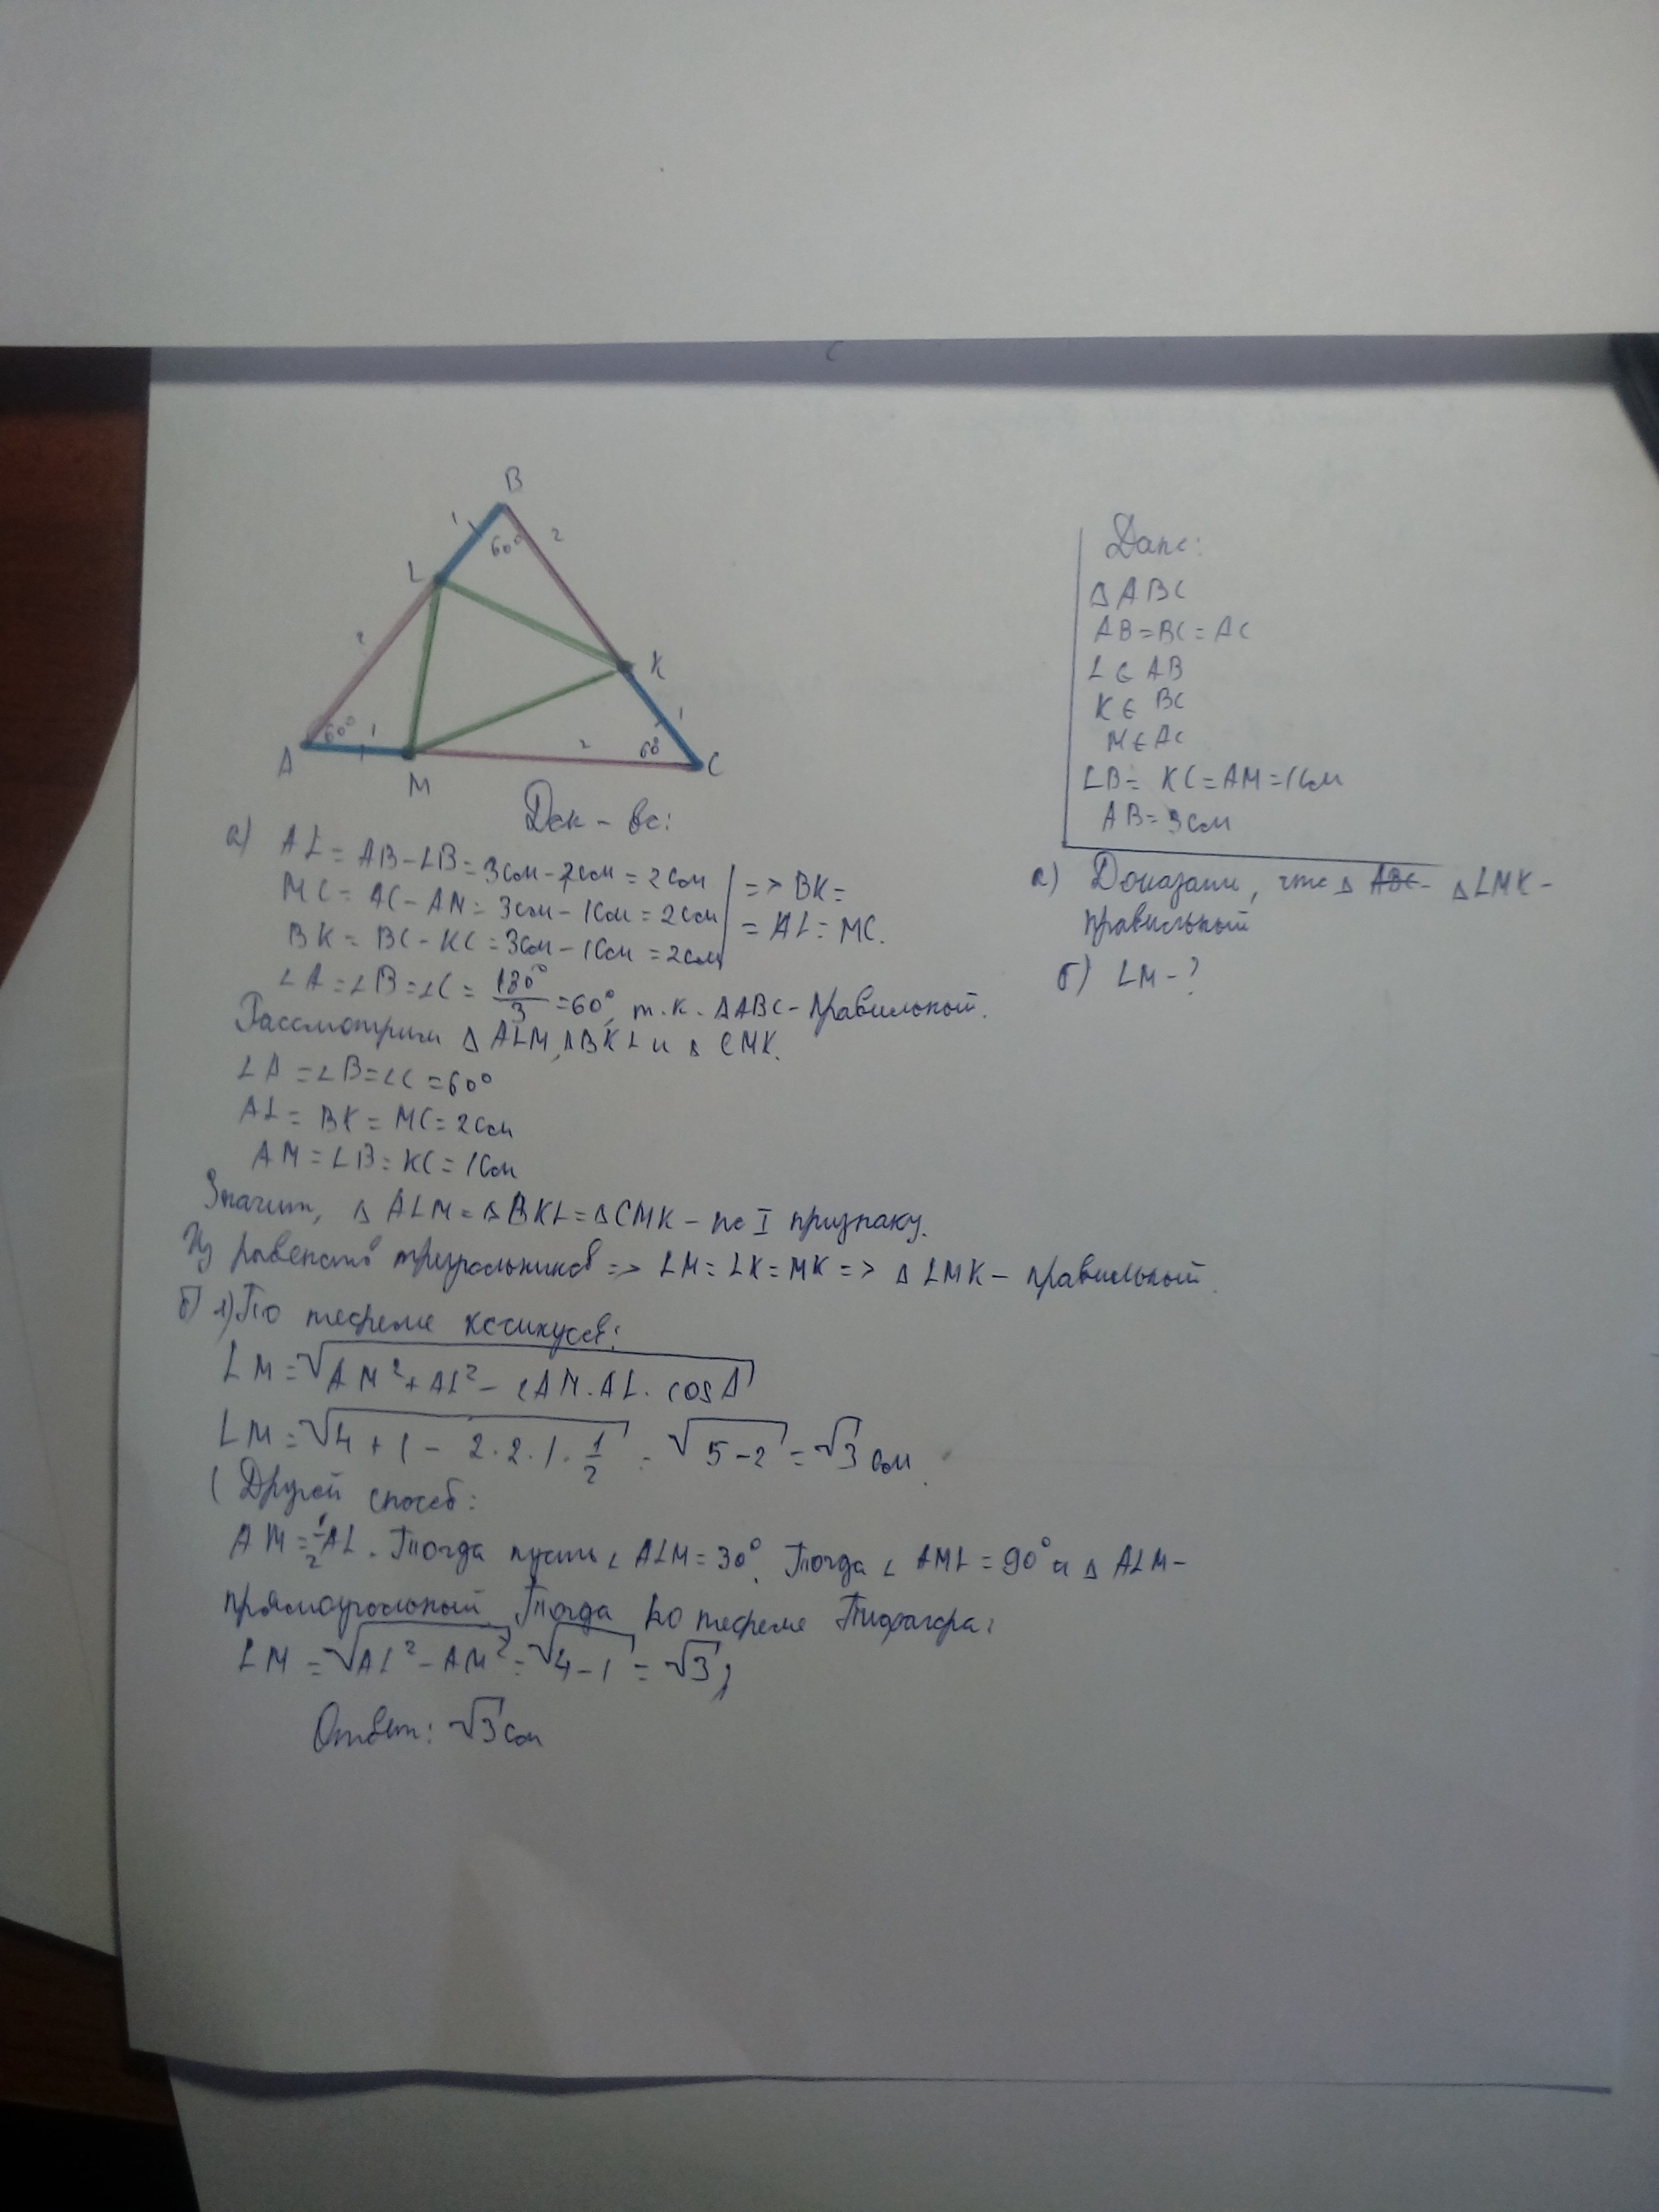 B
1
60°
2
L
2
K
1
60°
1
2
60°
A
M
C
Дано:
△ABC
AB=BC=AC
L∈AB
K∈BC
M∈AC
LB=KC=AM=1см
AB=3см
а) Доказать, что △ ABC - △LMK -
правильный
б) LM-?
Док-во:
а) AL=AB-LB=3см-1см=2см
MC=AC-AM=3см-1см=2см
BK=BC-KC=3см-1см=2см
=> BK=
=AL=MC.
∠A=∠B=∠C=180°/3=60°, т.к. △ABC-правильный.
Рассмотрим △ALM, △BKL и △CMK.
∠A=∠B=∠C=60°
AL=BK=MC=2см
AM=LB=KC=1см
Значит, △ALM=△BKL=△CMK-по I признаку.
Из равенств треугольников => LM=LK=MK => △LMK-правильный.
б) 1) По теореме косинусов:
LM=√(AM²+AL²-2AM·AL·cosA)
LM=√(4+1-2·2·1·1/2)=√(5-2)=√3 см.
(Другой способ:
AM=1/2AL. Тогда пусть ∠ALM=30°. Тогда ∠AML=90° и △ALM-
прямоугольный. Тогда по теореме Пифагора:
LM=√(AL²-AM²)=√(4-1)=√3)
Ответ: √3 см